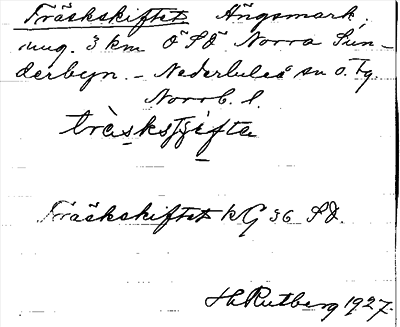 Träskskiftet Ängsmark.
ung. 3 km ÖSÖ Norra Sun-
derbyn. - Nederluleå sn o. tg.
Norrb. l.
Träskskiftet kG 36 SÖ.
H. Rutberg 1927.